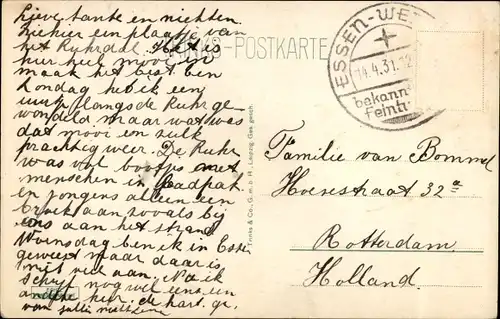 Lieve tante en nichten
Hierheen een plaatje van
het Ruhrdal. Het is
hier heel mooi en
maak het best ben
Zondag heb ik een
uur langs de Ruhr ge
wandeld maar wat was
dat mooi en zulk
prachtig weer. De Ruhr
was vol bootjes met
menschen in Badpak
en jongens alleen een
broek aan zooals bij
ons aan het strand
Woensdag ben ik in Essen
geweest maar daar is
niet veel aan. Na ik
schrijf nog wel eens een
andere keer. de hart. gr.
van jullie
-POSTKARTE
ESSEN-WE
14.4.31.12
bekann
Feintu
Trinks & Co., G. m. b. H., Leipzig. Ges. gesch.
Familie van Bommel
Hoevestraat 32 a
Rotterdam
Holland.